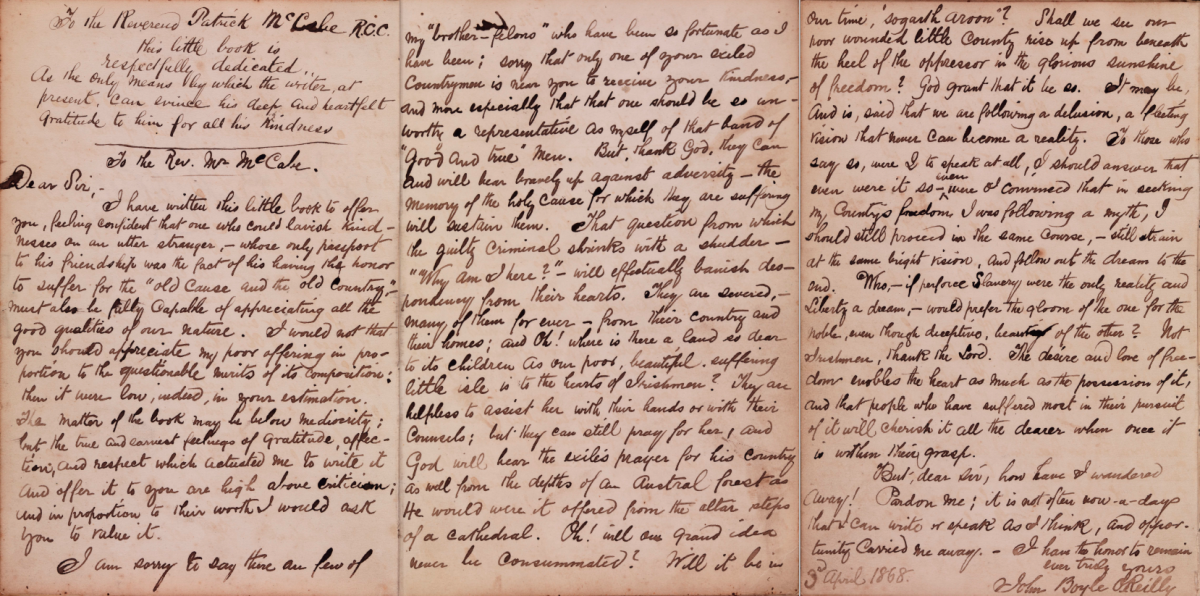 To the Reverend Patrick McCabe R.C.C.
this little book is
respectfully dedicated,
As the only means by which the writer, at
present, can evince his deep and heartfelt
Gratitude to him for all his kindness
To the Rev. Mr McCabe.
Dear Sir,-
I have written this little book to offer
you, feeling confident that one who could lavish kind-
nesses on an utter stranger, - whose only passport
to his friendship was the fact of his having the honor
to suffer for the "old cause and the old Country,"
must also be fully Capable of appreciating all the
good qualities of our nature. I would not that
you should appreciate my poor offering in pro-
portion to the questionable merits of its composition:
then it were low, indeed, in your estimation.
The matter of the book may be below mediocrity;
but the true and earnest feelings of gratitude, affec-
tion, and respect which actuated me to write it
and offer it to you are high above criticism;
and in proportion to their worth I would ask
you to value it.
I am sorry to say there are few of
my "brother-felons" who have been so fortunate as I
have been; sorry that only one of your exiled
Countrymen is near you to receive your kindness,
and more especially that that one should be so un-
worthy a representative as myself of that band of
"Good and true" Men. But, thank God, they can
and will bear bravely up against adversity - the
memory of the holy cause for which they are suffering
will sustain them. That question from which
the guilty Criminal shrinks with a shudder -
"Why am I here?" - will effectually banish des-
pondency from their hearts. They are severed, -
many of them for ever - from their country and
their homes; and Oh! where is there a land so dear
to its children as our poor, beautiful, suffering
little isle is to the hearts of Irishmen? They are
helpless to assist her with their hands or with their
Counsels; but they can still pray for her, and
God will hear the exile's prayer for his country
as well from the depths of an Austral forest as
He would were it offered from the altar steps
of a cathedral. Oh! will our grand idea
never be Consummated? Will it be in
our time, "sogarth aroon"? Shall we see our
poor wounded little County rise up from beneath
the heel of the oppressor in the glorious sunshine
of freedom? God grant that it be so. It may be,
And is, said that we are following a delusion, a fleeting
vision that never can become a reality. To those who
say so, were I to speak at all, I should answer that
even were it so - were even I convinced that in seeking
my County's freedom, I was following a myth, I
should still proceed in the same course, - still strain
at the same bright vision, and follow out the dream to the
end. Who, - if perforce Slavery were the only reality and
Liberty a dream, - would prefer the gloom of the one for the
noble, even though deceptive, beauty of the other? Not
Irishmen, thank the Lord. The desire and love of free-
dom enobles the heart as much as the possession of it,
and that people who have suffered most in their pursuit
of it will cherish it all the dearer when once it
is within their grasp.
But, dear sir, how have I wandered
away! Pardon me; it is not often now-a-days
that I can write or speak as I think, and oppor-
tunity Carried me away. - I have the honor to remain
ever truly yours
3d April 1868.
John Boyle O'Reilly